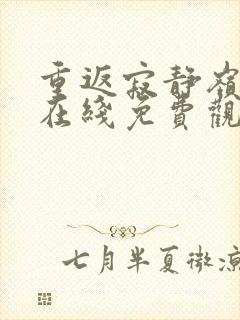 重返寂静嶺
在綫免費觀
七月半夏微凉